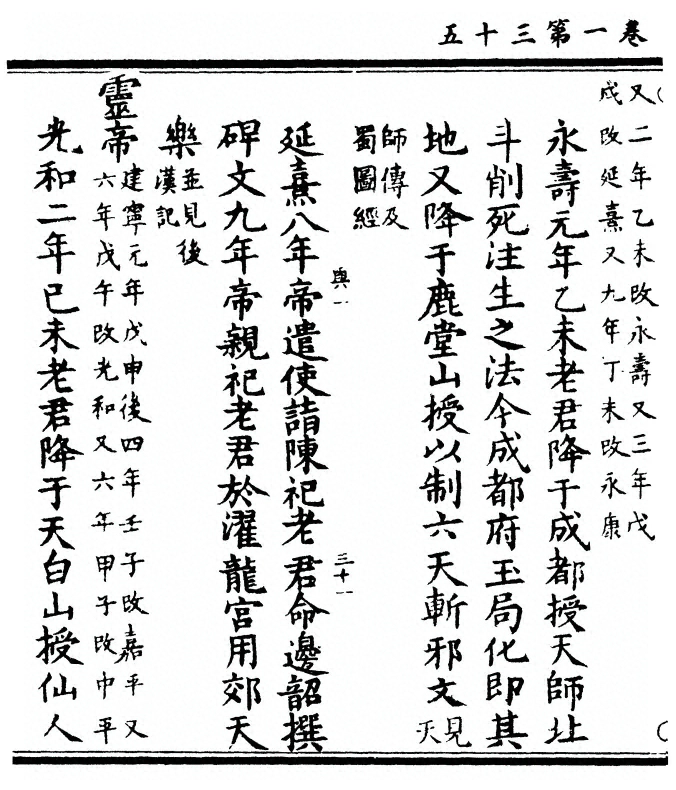 卷一第三十五
又二年乙未改永壽又三年戊
戌改延熹又九年丁未改永康
永壽元年乙未老君降于成都授天師北
斗削死注生之法今成都府玉局化即其
地又降于鹿堂山授以制六天斬邪文見天
師傳及
蜀圖經
與一
三十一
延熹八年帝遣使詣陳祀老君命邊韶撰
碑文九年帝親祀老君於濯龍宮用郊天
樂並見後
漢記
靈帝建寧元年戊申後四年壬子改嘉平又
六年戊午改光和又六年甲子改中平
光和二年己未老君降于天白山授仙人